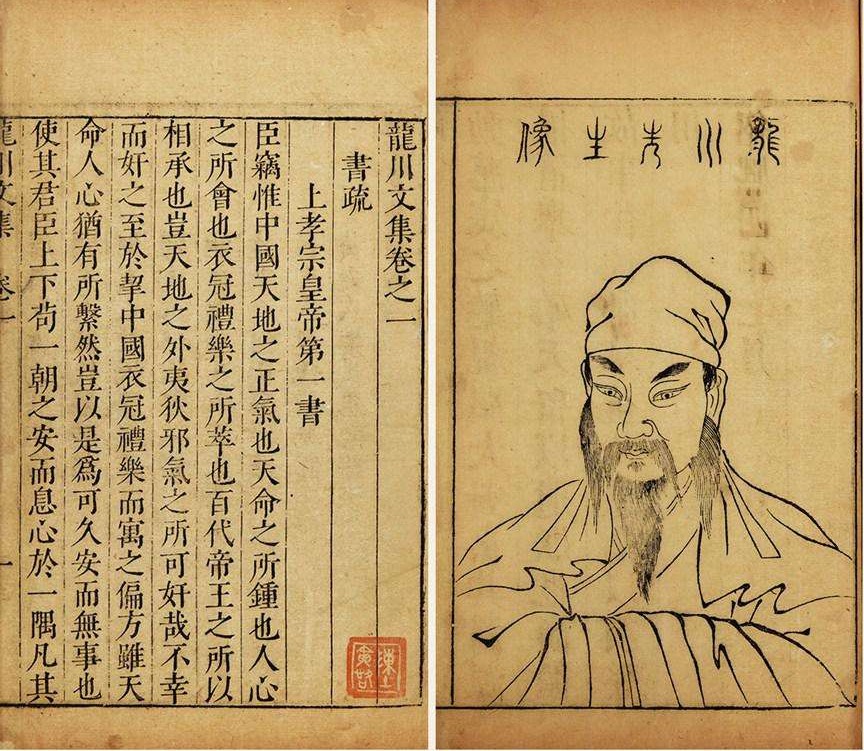 龍川先生像
龍川文集卷之一
書疏
上孝宗皇帝第一書
臣竊惟中國天地之正氣也天命之所鍾也人心
之所會也衣冠禮樂之所萃也百代帝王之所以
相承也豈天地之外夷狄邪氣之所可奸哉不幸
而奸之至於挈中國衣冠禮樂而寓之偏方雖天
命人心猶有所繫然豈以是爲可久安而無事也
使其君臣上下苟一朝之安而息心於一隅凡其
龍川文集 卷一 一